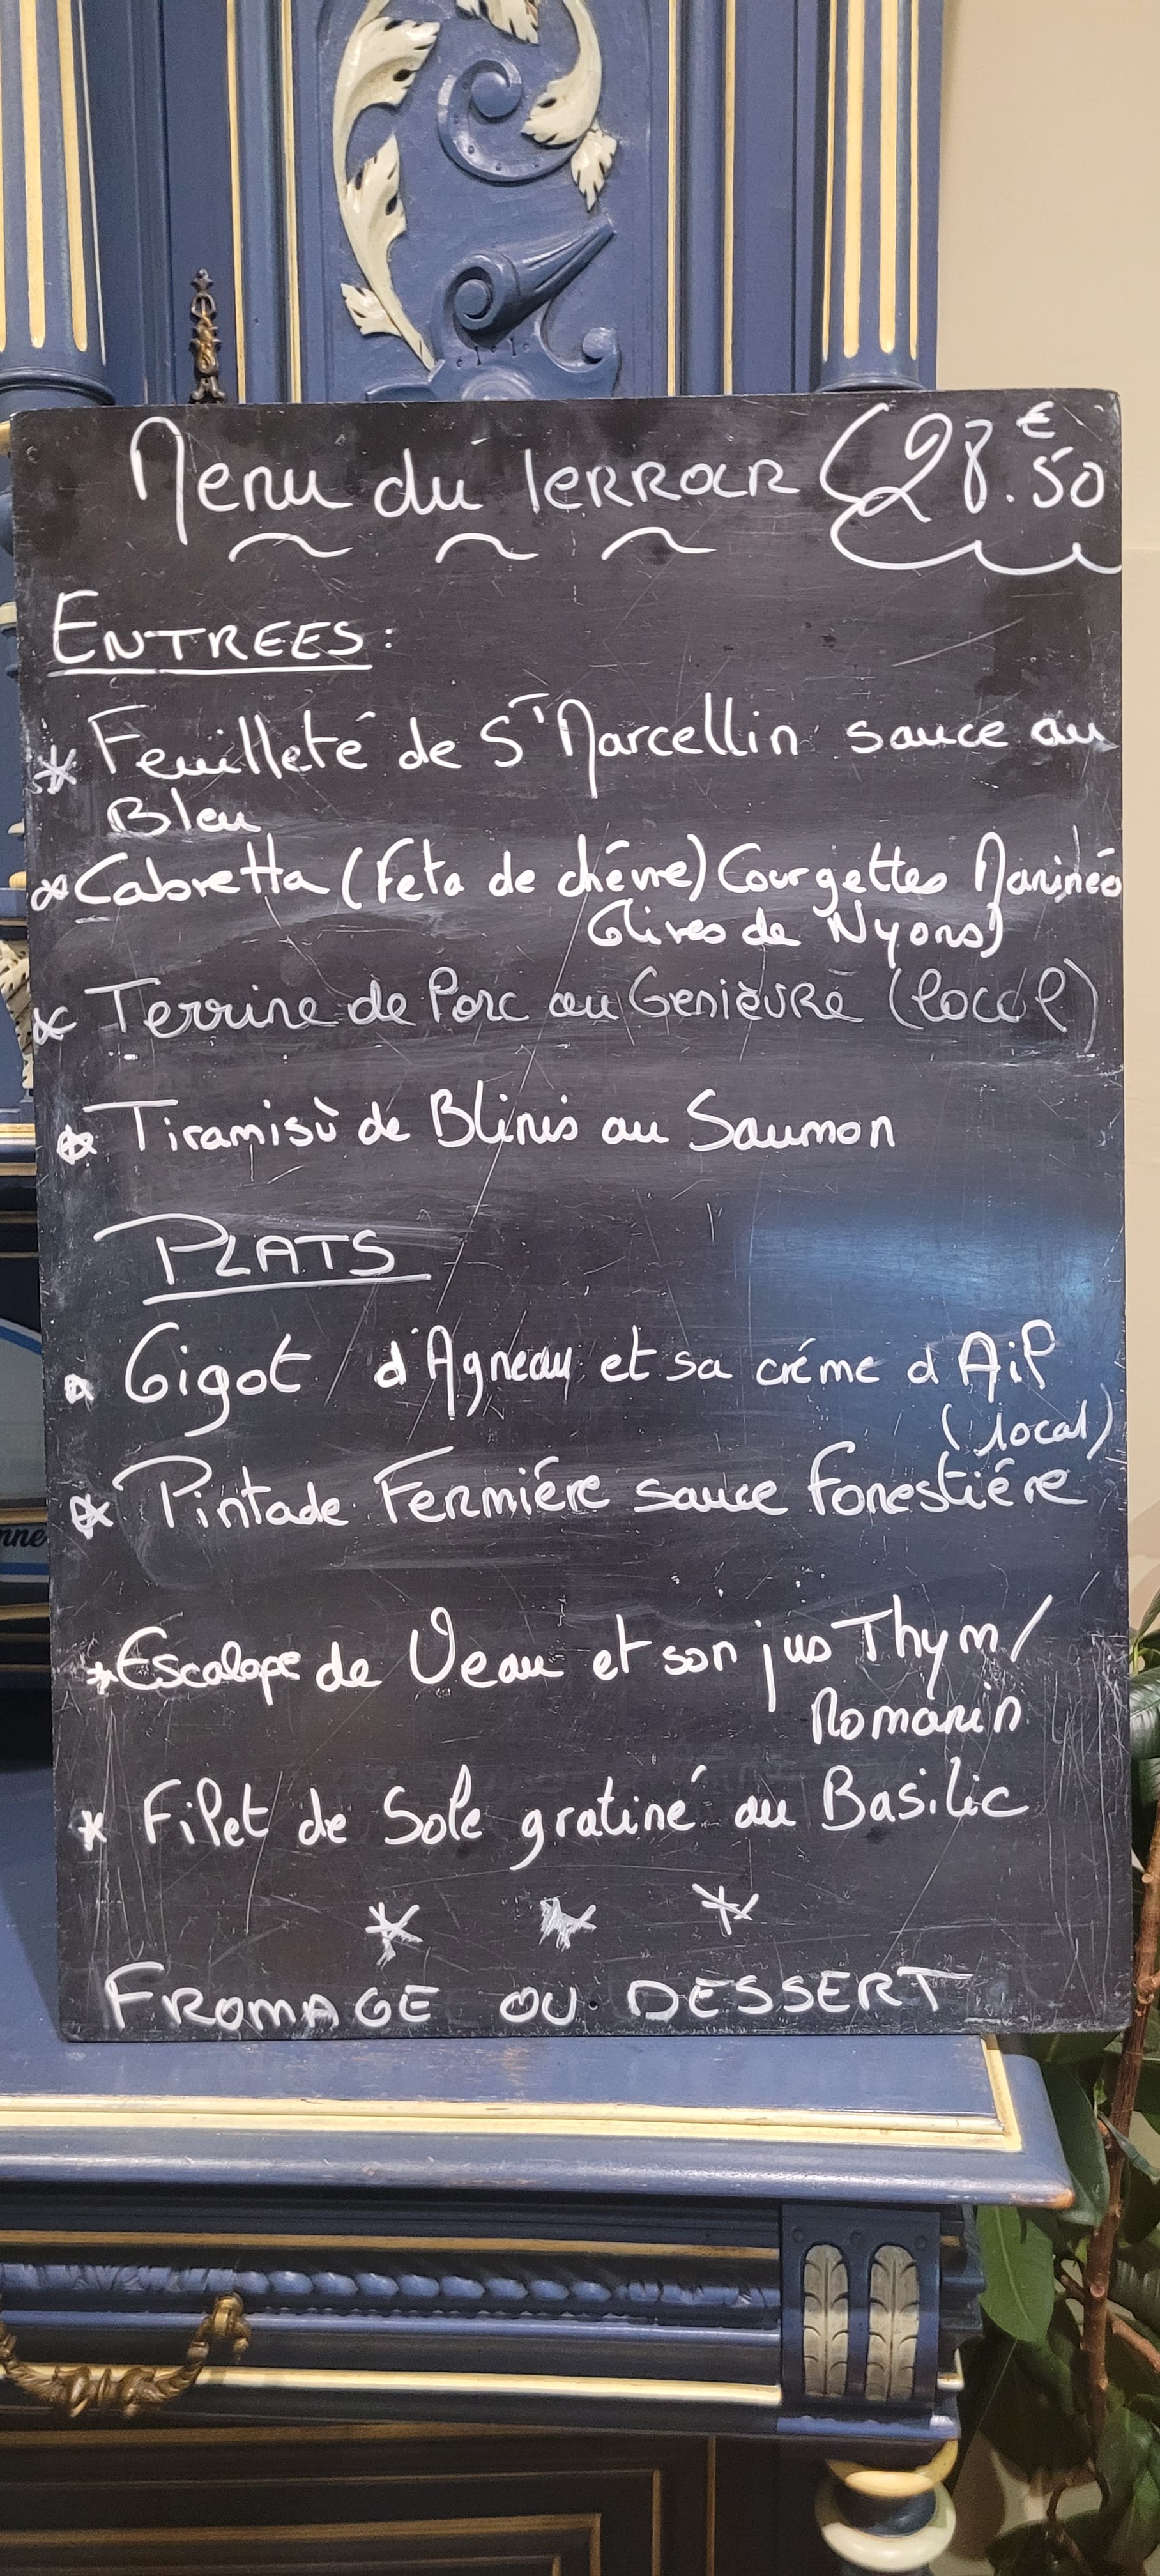 Menu du terroir 28.€50
ENTREES:
* Feuilleté de St Marcellin sauce au
Bleu
* Cabretta (Feta de chévre) Courgettes Marinées
Olives de Nyons)
* Terrine de Porc au Genièvre (local)
* Tiramisù de Blinis au Saumon
PLATS
* Gigot d'Agneau et sa créme d Ail
(local)
* Pintade Fermiére sauce forestiére
* Escalope de Veau et son jus Thym/
Romarin
* Filet de Sole gratiné au Basilic
* * *
FROMAGE OU DESSERT